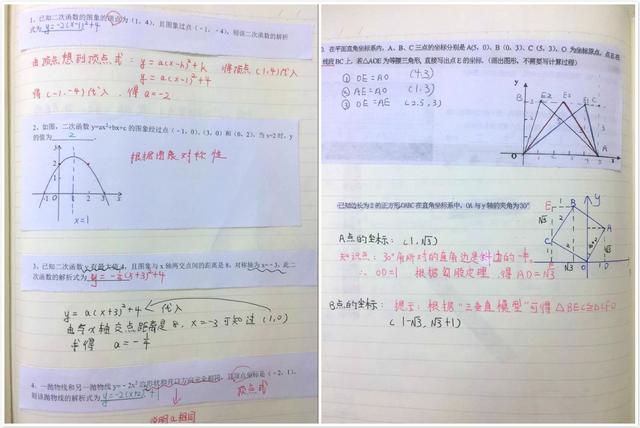 1、已知二次函数的图象的顶点为（1，4），且图象过点（-1，-4），则该二次函数的解析
式为 y=-2(x-1)²+4
由顶点想到顶点式：y=a(x-h)²+k 将顶点(1,4)代入
y=a(x-1)²+4
将(-1,-4)代入，得a=-2
2、如图，二次函数y=ax²+bx+c的图象经过点（-1，0），（3，0）和（0，2），当x=2时，y
的值为 2 .
根据图象对称性
x=1
3、已知二次函数y有最大值4，且图象与x轴两交点间的距离是8，对称轴为x=-3，此二
次函数的解析式为 y=-¼(x+3)²+4
y=a(x+3)²+4 代入
由与x轴交点距离是8，x=-3可知过(1,0)
求得 a=-¼
4、一抛物线和另一抛物线y=-2x²的形状和开口方向完全相同，且顶点坐标是（-2，1），
则该抛物线的解析式为 y=-2(x+2)²+1
顶点式
说明a相同
3. 在平面直角坐标系内，A、B、C三点的坐标分别是A(5，0)、B（0，3）、C（5，3），O为坐标原点，点E在
线段BC上，若△AOE为等腰三角形，直接写出点E的坐标.（画出图形，不需要写计算过程）
① OE=AO (4,3)
② AE=AO (1,3)
③ OE=AE (2.5,3)
已知边长为2的正方形OABC在直角坐标系中，OA与y轴的夹角为30°
A点的坐标：(1,√3)
知识点：30°角所对的直角边是斜边的一半
∴ OD=1 根据勾股定理，得AD=√3
B点的坐标： 提示：根据“三垂直模型”可得△BEC≌△CFO
(1-√3, √3+1)